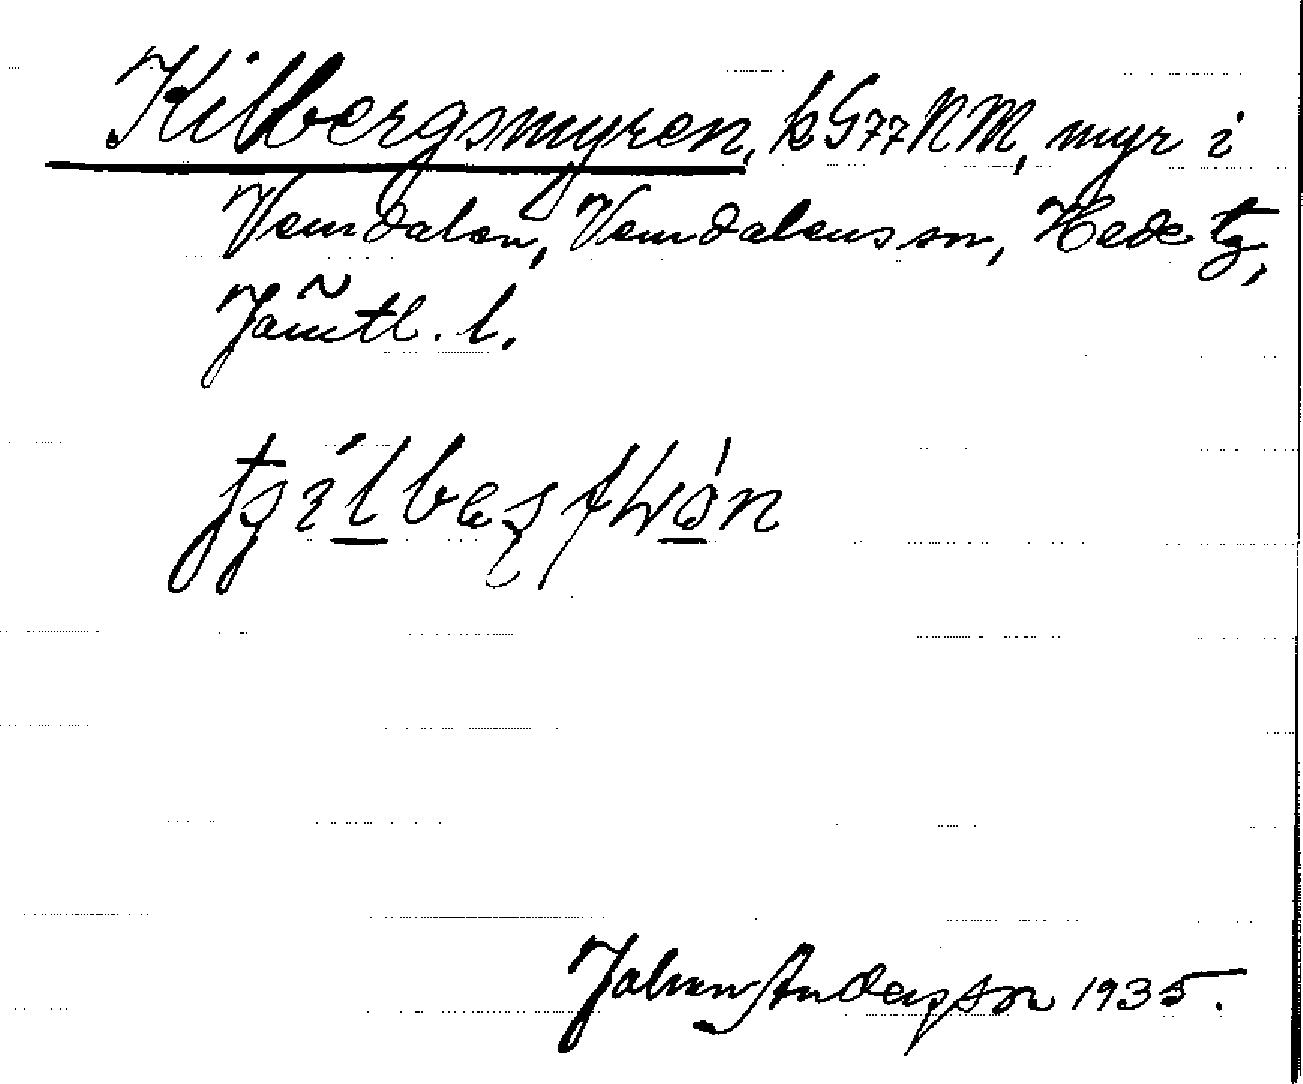 Kilbergsmyren, k G77NM, myr i
Vemdalen, Vemdalens sn, Hede tg,
Jämtl. l.
Johan Andersson 1935.